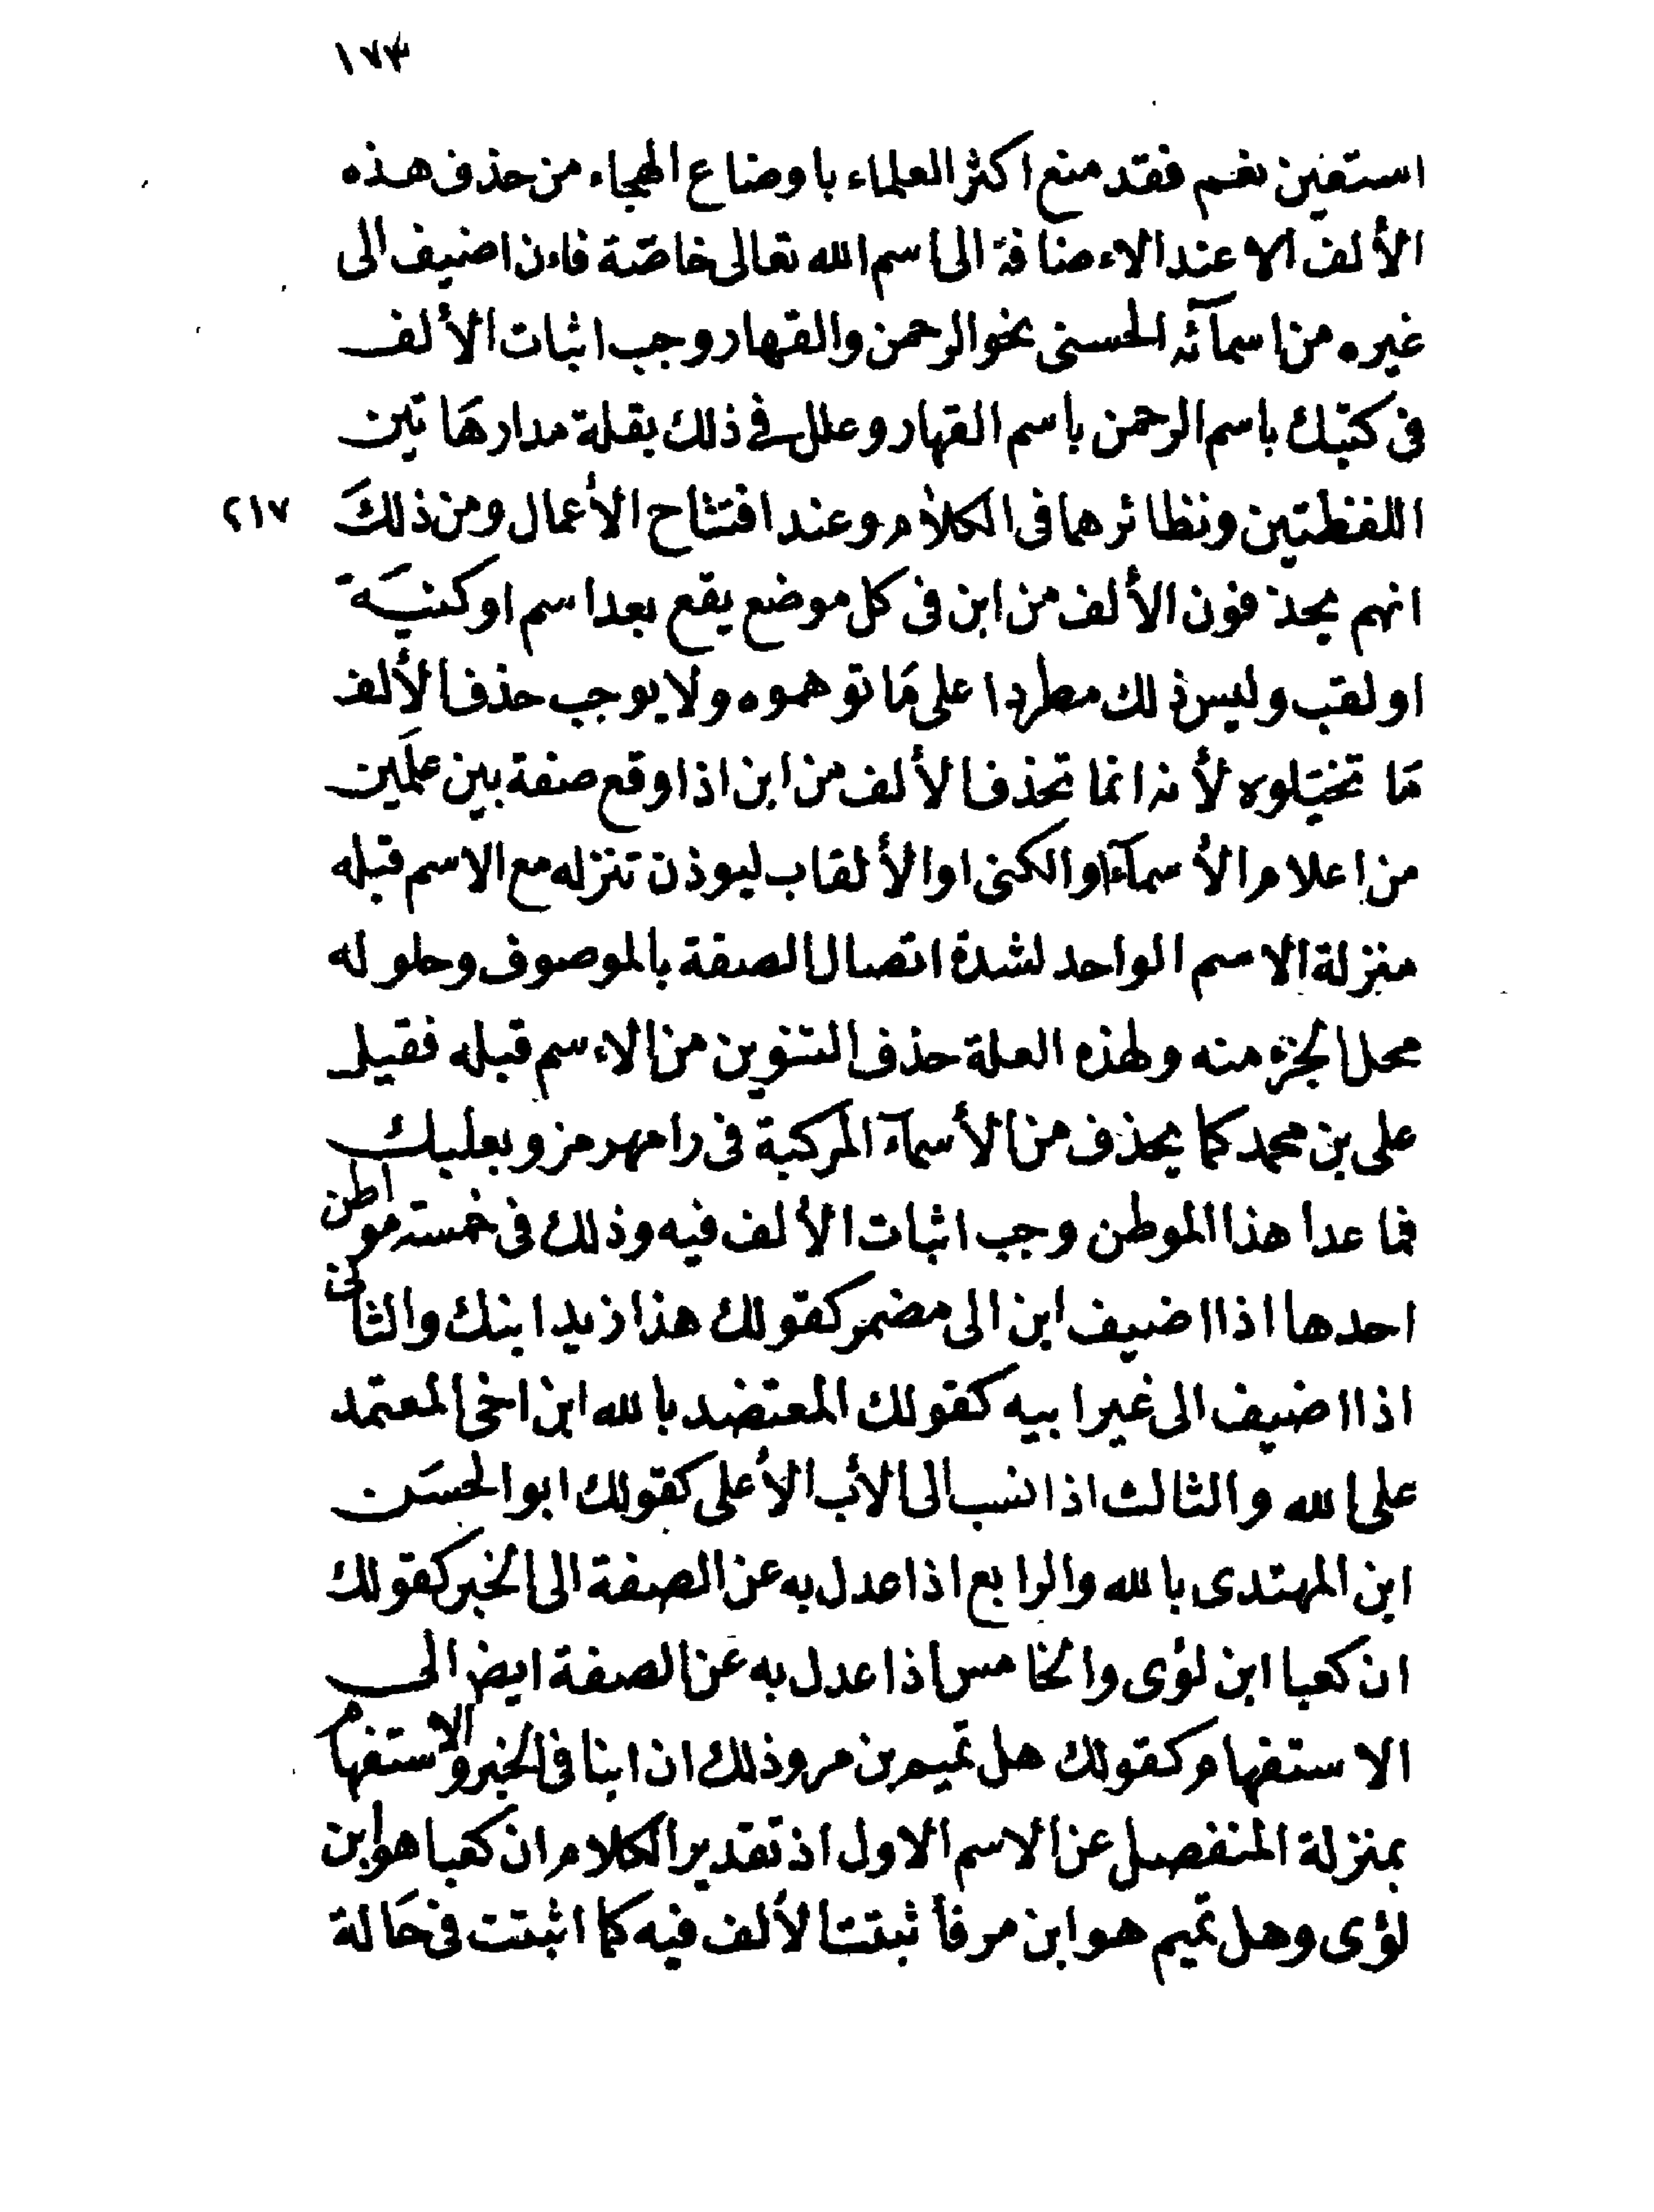 ١٧٣
استعين نعم فقد منع اكثر العلماء باوضاع الهجاء من حذف هذه
الألف الا عند الاءضافة الى اسم الله تعالى خاصّة فاءن اضيف الى
غيره من اسمآئه الحسنى نحو الرحمن والقهار وجب اثبات الألف
فى كتبك باسم الرحمن باسم القهار وعلل فى ذلك بقلة مدار هَاتين
اللفظتين ونظائرهما فى الكلام وعند افتتاح الأعمال ومن ذلكَ
٢١٧
انهم يحذفون الألف من ابن فى كل موضع يقع بعد اسم او كنيَة
او لقب وليس ذلك مطردا على مَا توهموه ولا يوجب حذف الألف
مَا تخيّلوه لأنه انما تحذف الألف من ابن اذا وقع صفة بين علَمين
من اعلام الأسمآء او الكنى او الألقاب ليوذن تنزله مع الاسم قبله
منزلة الاسم الواحد لشدة اتصال الصفة بالموصوف وحلوله
محل الجزء منه ولهذه العلة حذف التنوين من الاءسم قبله فقيل
على بن محمد كما يحذف من الأسمآء المركبة فى رامهرمز وبعلبك
فما عدا هذا الموطن وجب اثبات الألف فيه وذلك فى خمسة مواطن
احدها اذا اضيف ابن الى مضمر كقولك هذا زيد ابنك والثانى
اذا اضيف الى غير ابيه كقولك المعتضد بالله ابن اخى المعتمد
على الله والثالث اذا نسب الى الأب الأعلى كقولك ابو الحسَن
ابن المهتدى بالله والرابع اذا عدل به عن الصفة الى الخبر كقولك
ان كعبا ابن لؤى والخامس اذا عدل به عن الصفة ايض الى
الاستفهام كقولك هل تميم بن مر وذلك ان ابنا فى الخبر والاستفهام
بمنزلة المنفصل عن الاسم الاول اذ تقدير الكلام ان كعبا هو ابن
لؤى وهل تميم هو ابن مر فأثبتت الألف فيه كما اثبتت فى حَالة